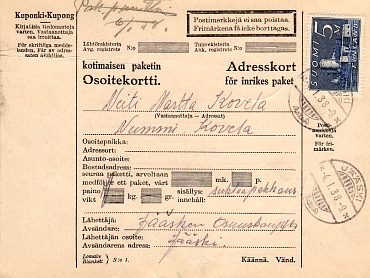 Kuponki-Kupong
Kirjallisia tiedonantoja
varten. Vastaanottaja
saa irroittaa.
För skriftliga meddelanden.
Får av adressaten
avskiljas.
Postimerkkejä ei saa poistaa.
Frimärkena få icke borttagas.
Lähtörekisterin
Avg. registrets N:o
Tulorekisterin
Ank. registrets N:o
kotimaisen paketin
Osoitekortti.
Adresskort
för inrikes paket
SUOMI 5 M
FINLAND
Neiti Martta Kovela
(Vastaanottaja — Adressat)
Nummi, Kovela
Osoitepaikka:
Adressort:
Asunto-osoite:
Bostadsadress:
seuraa paketti, arvoltaan
medföljer ett paket, värt mk. p.
paino
vikt kg. gr.
sisällys:
innehåll:
Lähettäjä:
Avsändare: Jääsken Osuuskauppa
Lähettäjän osoite:
Avsändarens adress: Jääski.
Lomake
Blankett N:o 1.
Käännä. Vänd.
Postimerkkejä
varten.
För frimärken.
JÄÄSKI